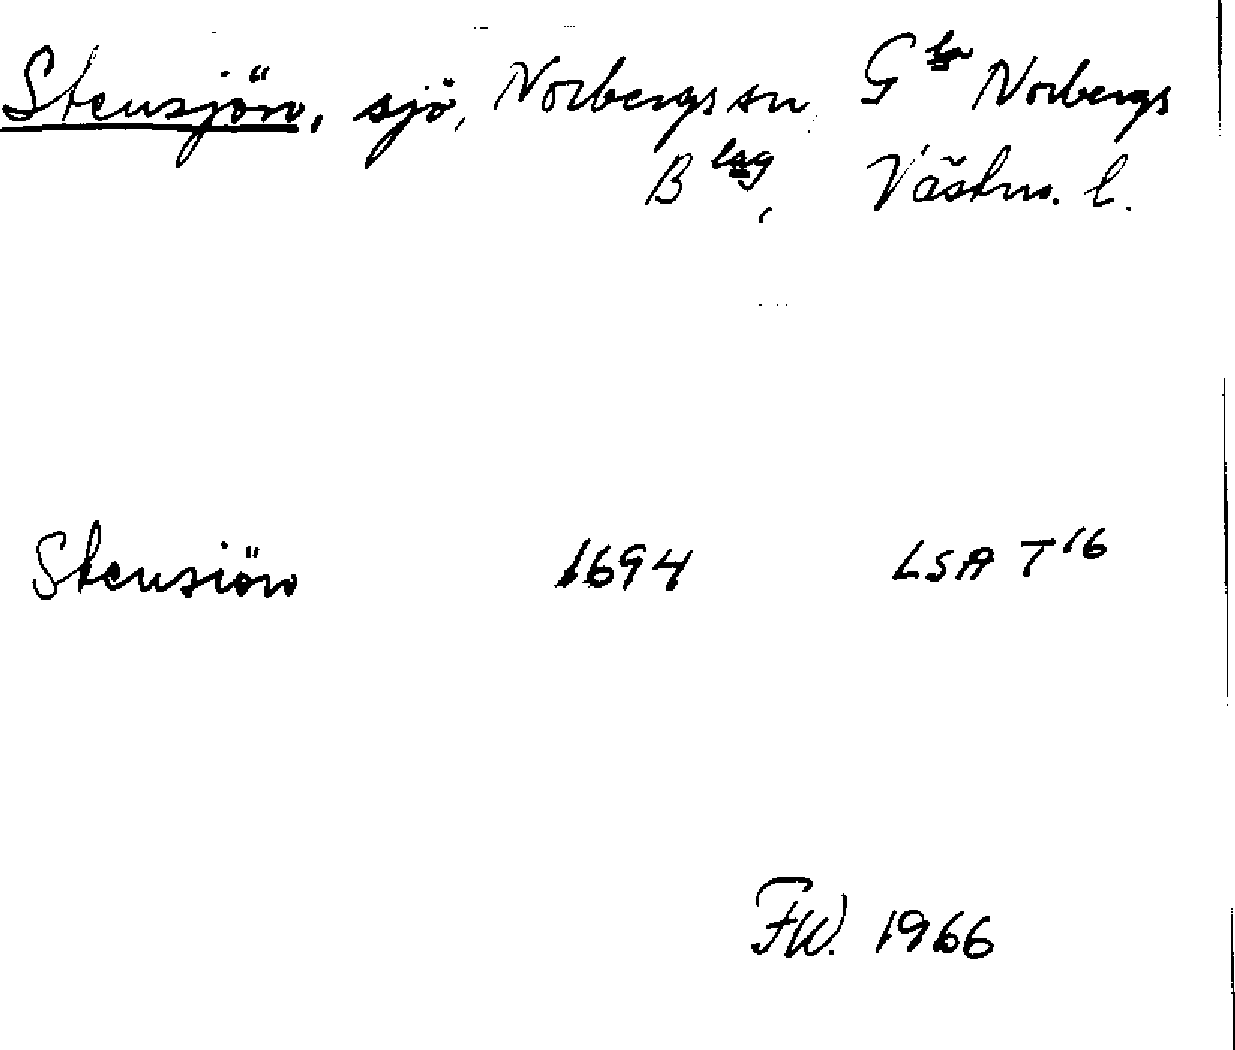 Stensjön, sjö, Norbergs sn, Gla Norbergs
Blag, Västm. l.
Stensiön 1694 LSA T16
FW. 1966